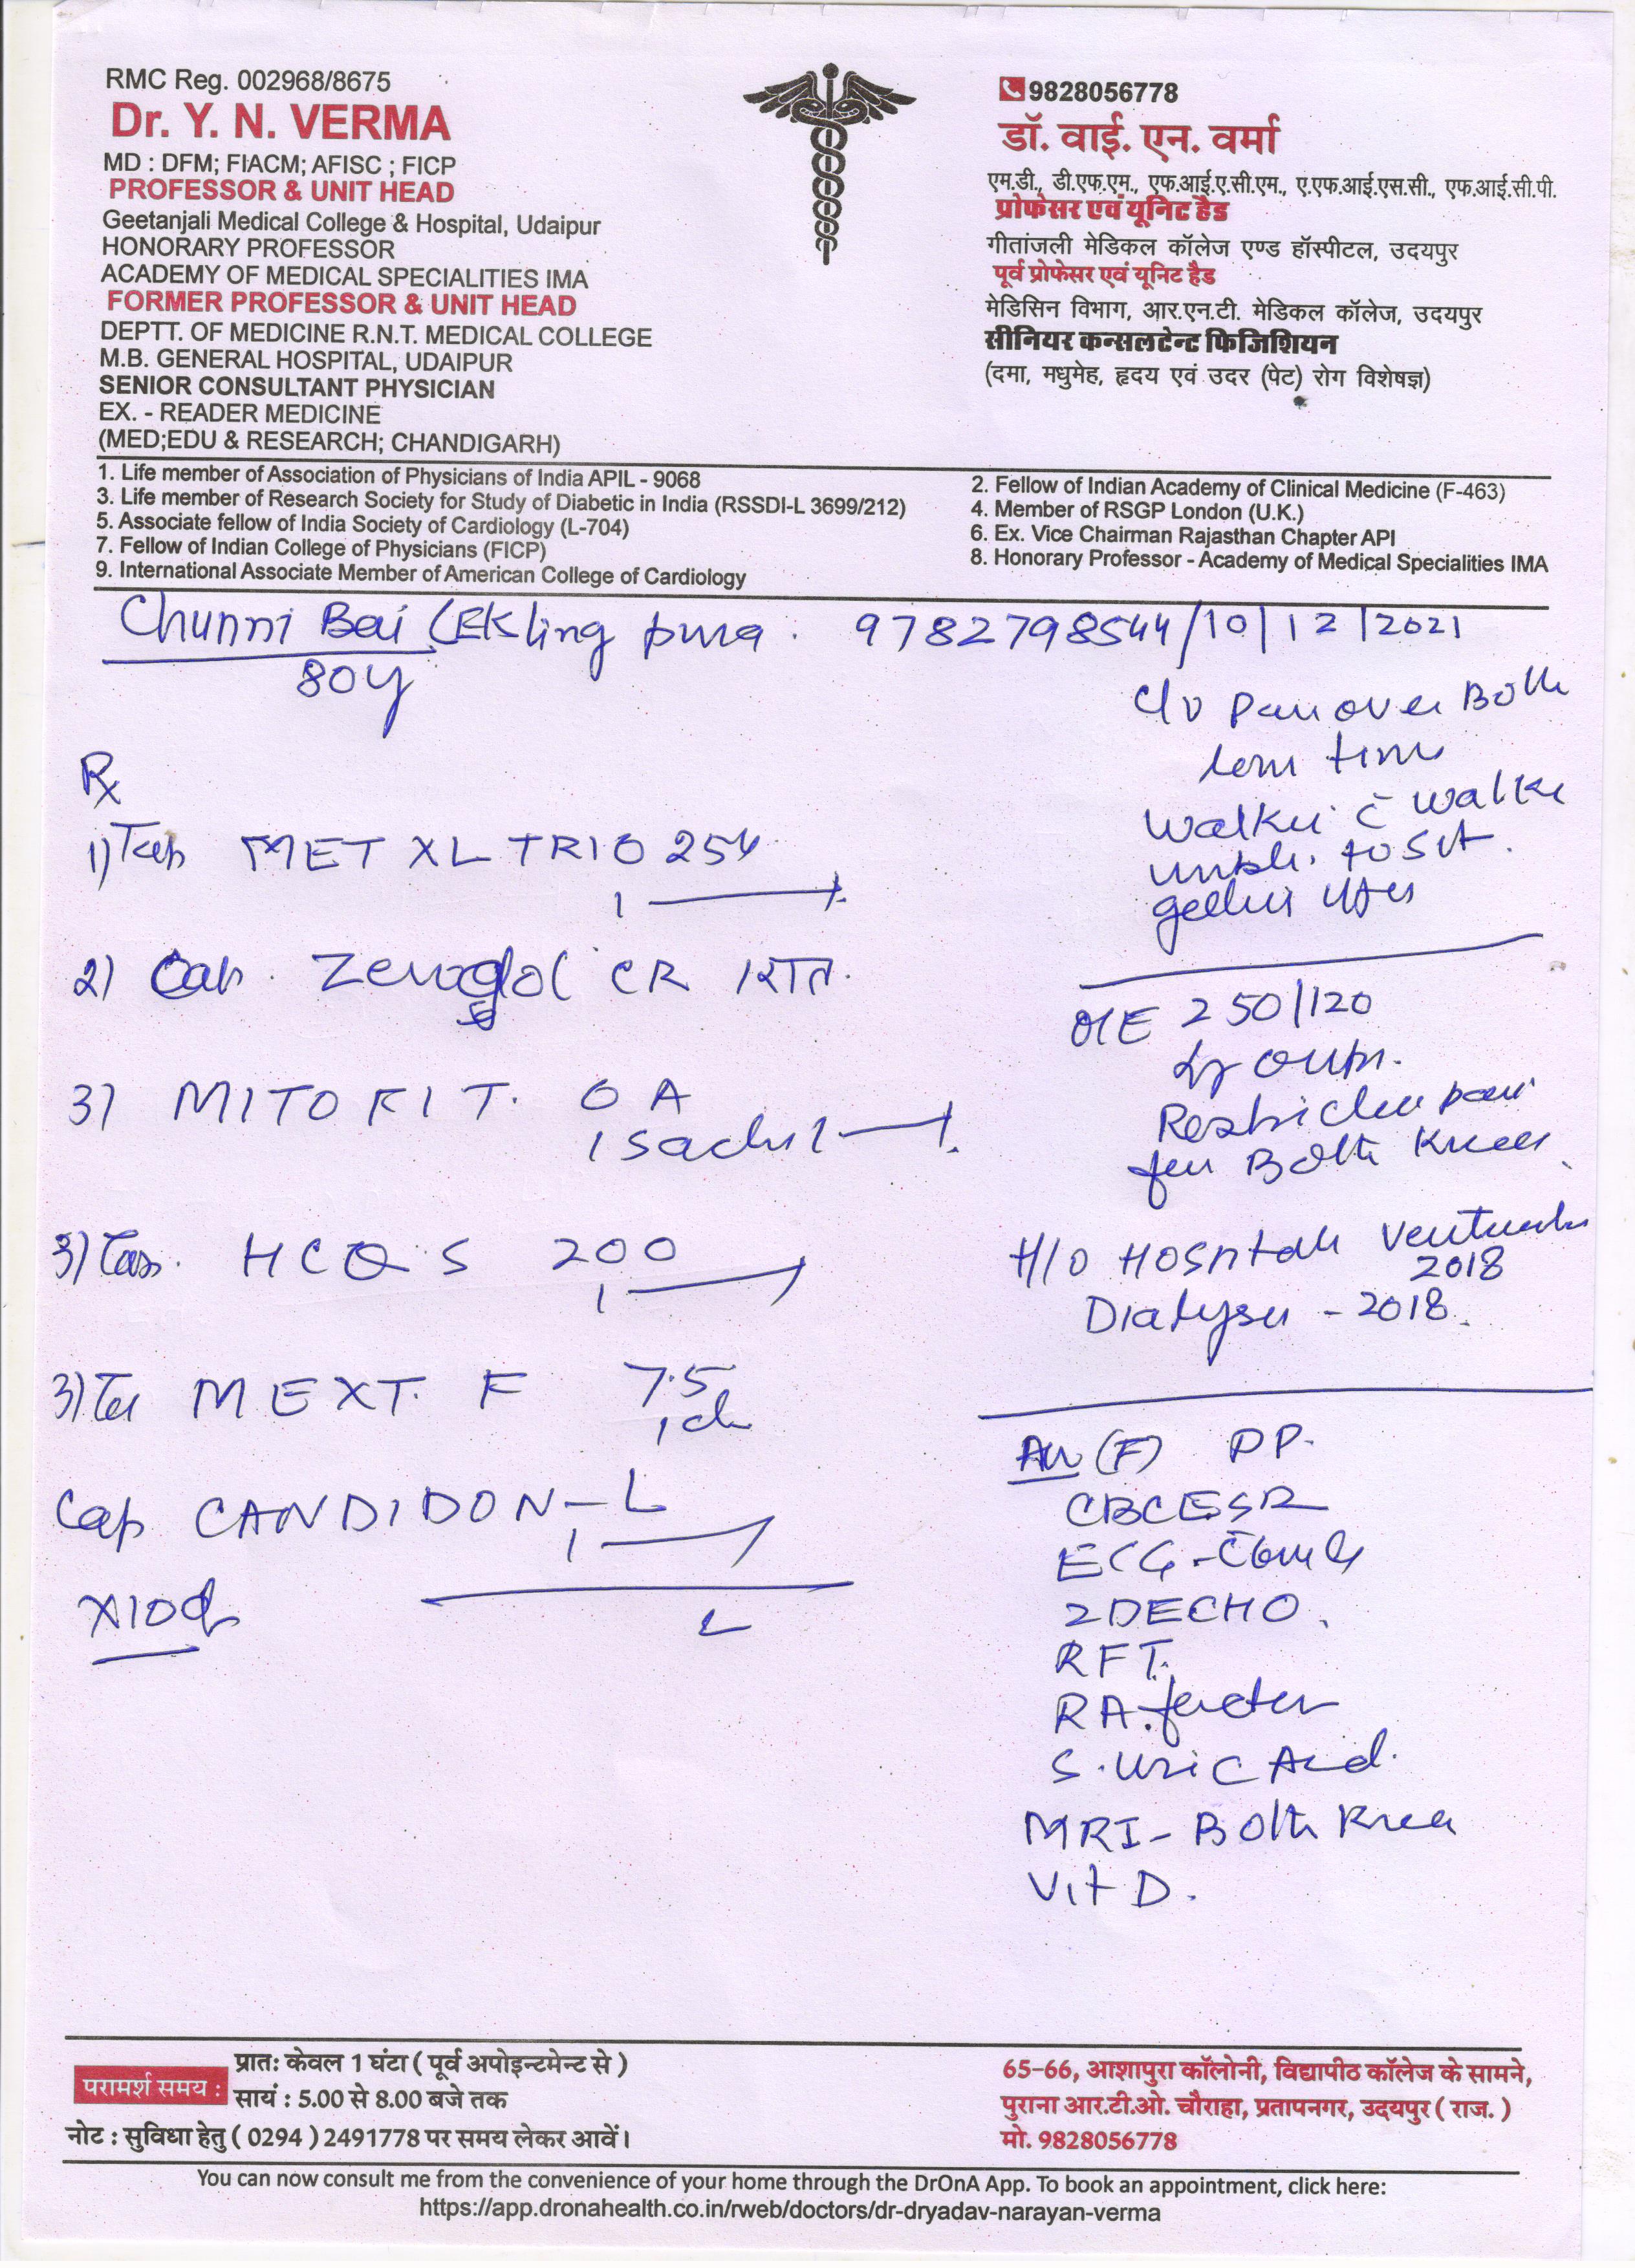 RMC Reg. 002968/8675
Dr. Y. N. VERMA
MD : DFM; FIACM; AFISC ; FICP
PROFESSOR & UNIT HEAD
Geetanjali Medical College & Hospital, Udaipur
HONORARY PROFESSOR
ACADEMY OF MEDICAL SPECIALITIES IMA
FORMER PROFESSOR & UNIT HEAD
DEPTT. OF MEDICINE R.N.T. MEDICAL COLLEGE
M.B. GENERAL HOSPITAL, UDAIPUR
SENIOR CONSULTANT PHYSICIAN
EX. - READER MEDICINE
(MED;EDU & RESEARCH; CHANDIGARH)
9828056778
डॉ. वाई. एन. वर्मा
एम.डी., डी.एफ.एम., एफ.आई.ए.सी.एम., ए.एफ.आई.एस.सी., एफ.आई.सी.पी.
प्रोफेसर एवं यूनिट हैड
गीतांजली मेडिकल कॉलेज एण्ड हॉस्पीटल, उदयपुर
पूर्व प्रोफेसर एवं यूनिट हैड
मेडिसिन विभाग, आर.एन.टी. मेडिकल कॉलेज, उदयपुर
सीनियर कन्सलटेन्ट फिजिशियन
(दमा, मधुमेह, हृदय एवं उदर (पेट) रोग विशेषज्ञ)
1. Life member of Association of Physicians of India APIL - 9068
2. Fellow of Indian Academy of Clinical Medicine (F-463)
3. Life member of Research Society for Study of Diabetic in India (RSSDI-L 3699/212)
4. Member of RSGP London (U.K.)
5. Associate fellow of India Society of Cardiology (L-704)
6. Ex. Vice Chairman Rajasthan Chapter API
7. Fellow of Indian College of Physicians (FICP)
8. Honorary Professor - Academy of Medical Specialities IMA
9. International Associate Member of American College of Cardiology
Chunni Bai (Ekling pura. 9782798544/10/12/2021
80y
Rx
1) Tab MET XL TRIO 25
1
2) Cap. CR 1 रात.
3) MITOFIT. OA
1 sachet
3) Tab. HCQS 200
1
3) MEXT. F 7.5
1
Cap CANDIDON-L
1
X10d
C/o Pain over Both
time
c̄
unable to sit
O/E 250/120
pain
Both Knees
H/O 2018
Dialysis - 2018.
(F) PP.
CBC ESR
ECG -
2DECHO.
RFT.
RA. factor
S. Uric Acid.
MRI- Both Knee
Vit D.
परामर्श समय :
प्रातः केवल 1 घंटा ( पूर्व अपोइन्टमेन्ट से )
सायं : 5.00 से 8.00 बजे तक
नोट : सुविधा हेतु ( 0294 ) 2491778 पर समय लेकर आवें।
65-66, आशापुरा कॉलोनी, विद्यापीठ कॉलेज के सामने,
पुराना आर.टी.ओ. चौराहा, प्रतापनगर, उदयपुर ( राज. )
मो. 9828056778
You can now consult me from the convenience of your home through the DrOnA App. To book an appointment, click here:
https://app.dronahealth.co.in/rweb/doctors/dr-dryadav-narayan-verma